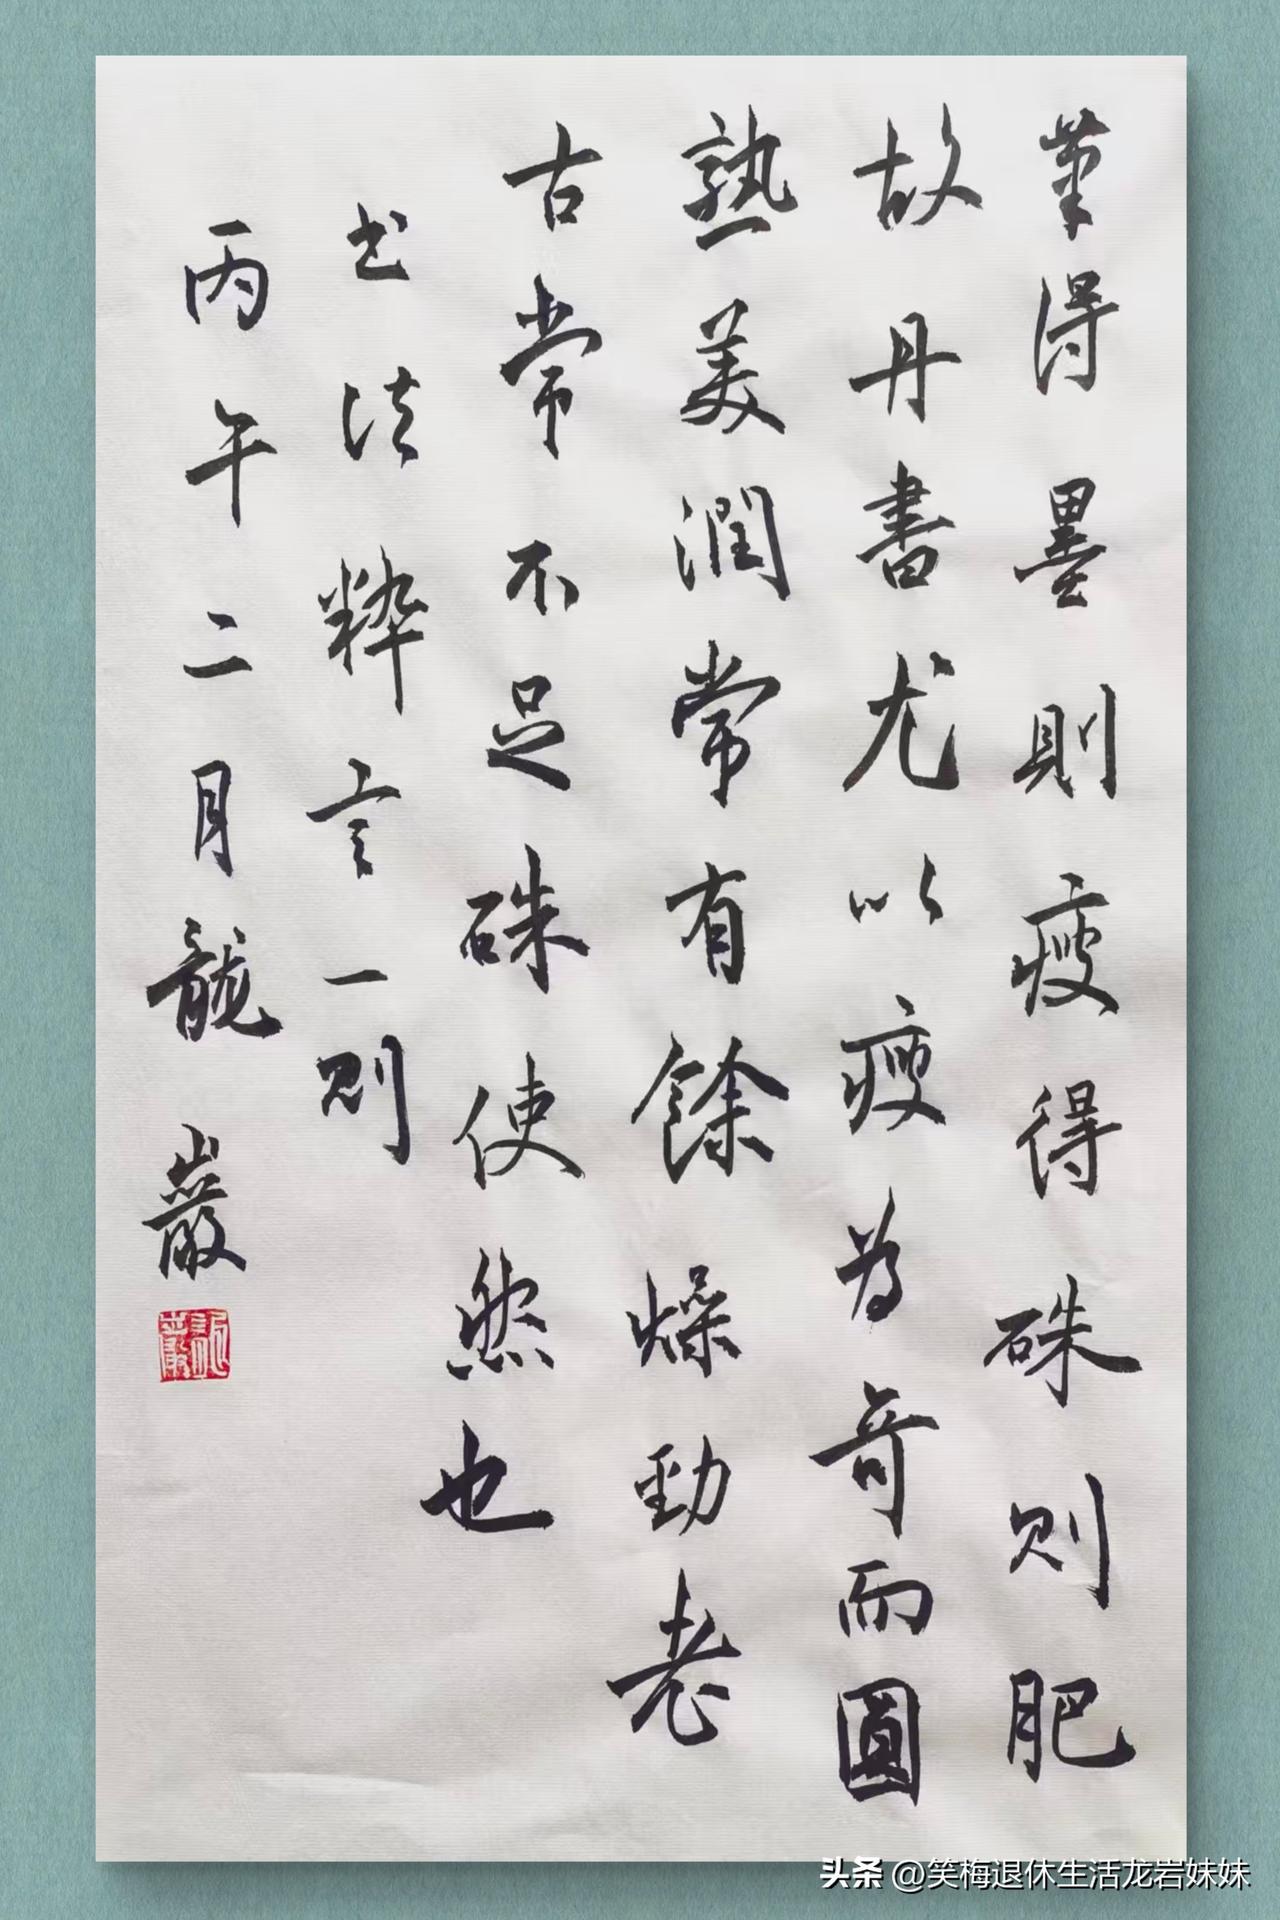 筆得墨則瘦得硃则肥
故丹書尤以瘦為奇而圓
熟美潤常有餘燥勁老
古常不足硃使然也
书法粹言一则
丙午二月龍巖
龍巖
头条 @笑梅退休生活龙岩妹妹